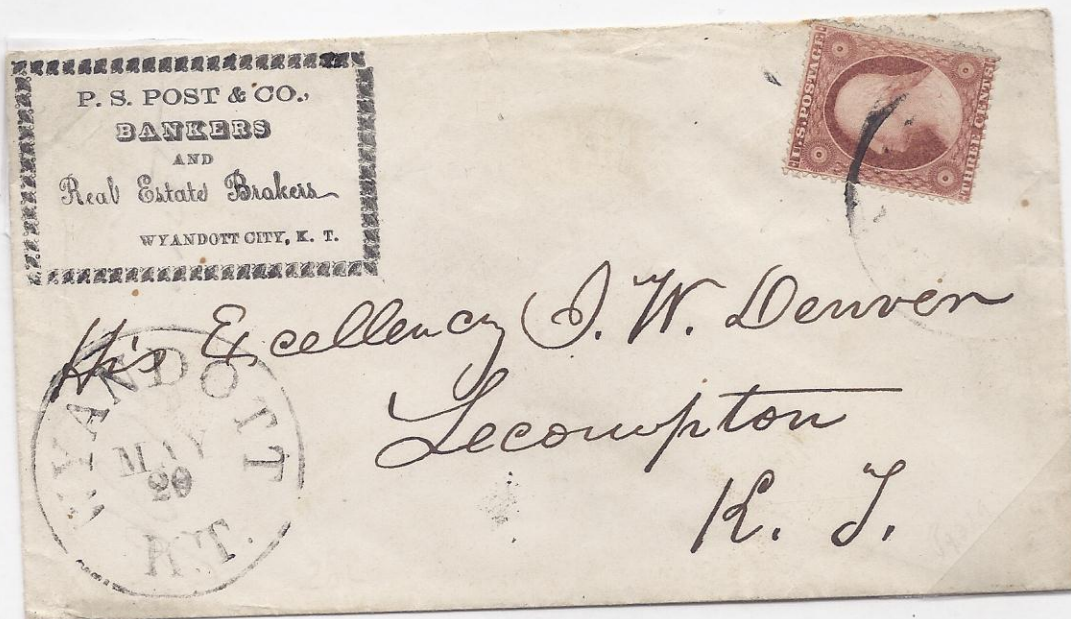 P. S. POST & CO.,
BANKERS
AND
Real Estate Brokers
WYANDOTT CITY, K. T.
U.S. POSTAGE
THREE CENTS
His Excellency J. W. Denver
Lecompton
K. T.
WYANDOTT
MAY
29
K.T.